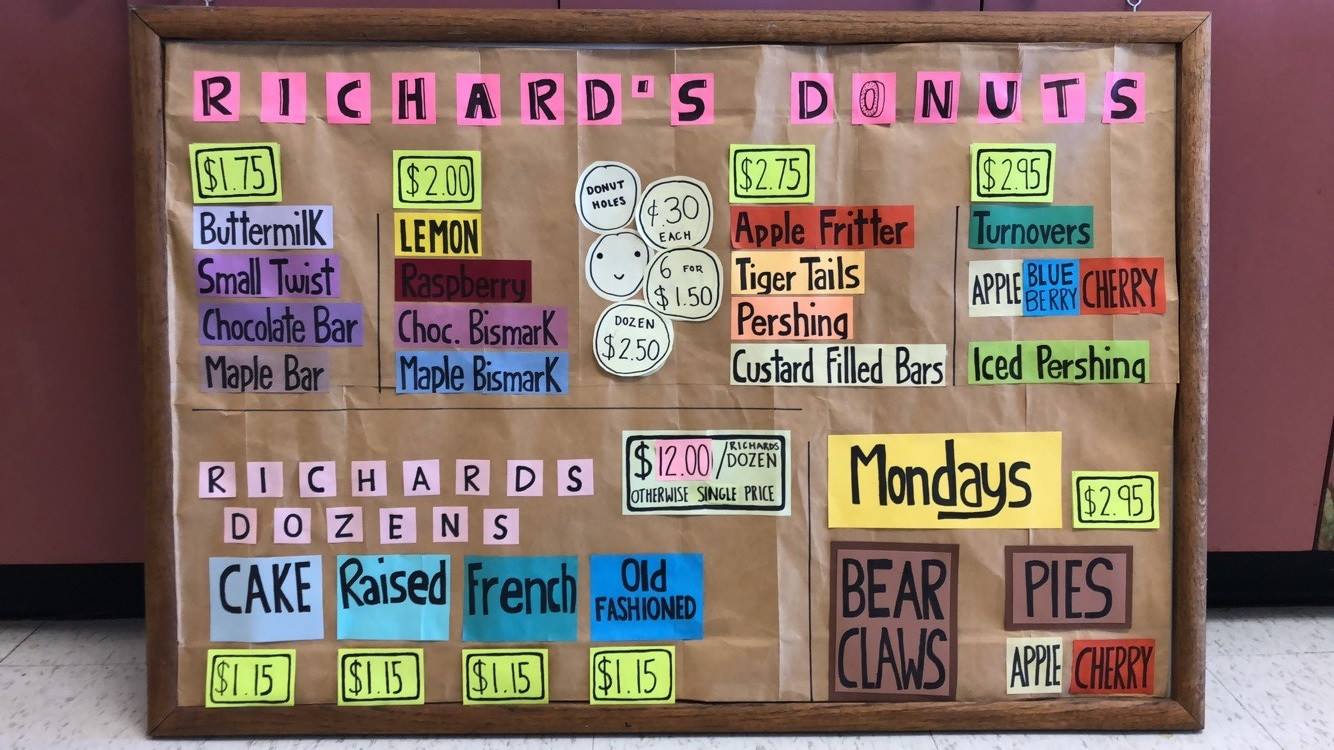 RICHARD'S DONUTS
$1.75
ButtermilK
Small Twist
Chocolate Bar
Maple Bar
$2.00
LEMON
Raspberry
Choc. BismarK
Maple BismarK
DONUT
HOLES
¢.30
EACH
6 FOR
$1.50
DOZEN
$2.50
$2.75
Apple Fritter
Tiger Tails
Pershing
Custard Filled Bars
$2.95
Turnovers
APPLE BLUE BERRY CHERRY
Iced Pershing
RICHARDS
DOZENS
$12.00/RICHARDS DOZEN
OTHERWISE SINGLE PRICE
CAKE Raised French Old FASHIONED
$1.15 $1.15 $1.15 $1.15
Mondays $2.95
BEAR
CLAWS
PIES
APPLE CHERRY